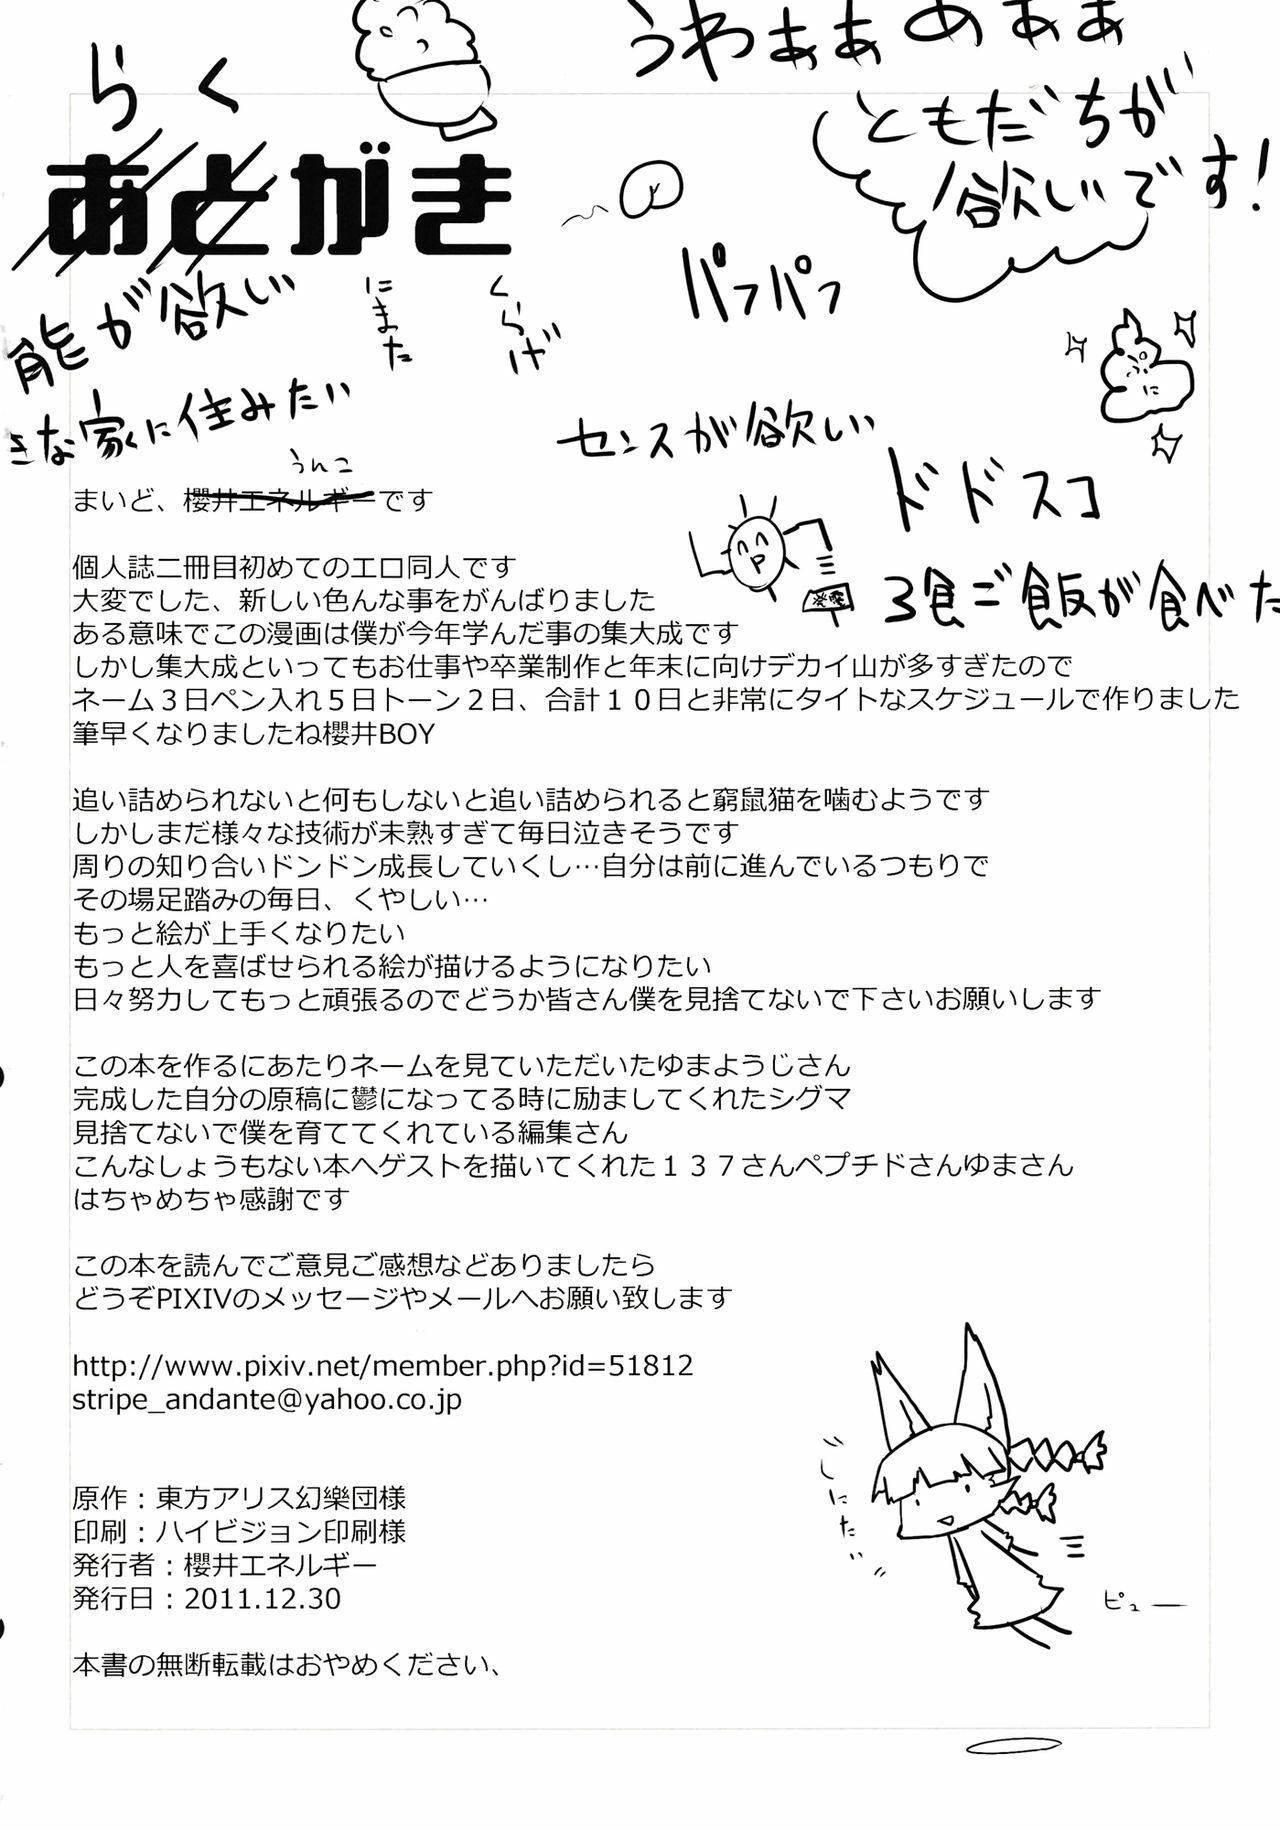 うわぁぁあぁぁ
らく
ともだちが
欲しいです!
あとがき
パフパフ
能が欲しい
にまた
くらげ
きな家に住みたい
センスが欲しい
うんこ
まいど、櫻井エネルギーです
ドドスコ
3食ご飯が食べた
個人誌二冊目初めてのエロ同人です
大変でした、新しい色んな事をがんばりました
ある意味でこの漫画は僕が今年学んだ事の集大成です
しかし集大成といってもお仕事や卒業制作と年末に向けデカイ山が多すぎたので
ネーム3日ペン入れ5日トーン2日、合計10日と非常にタイトなスケジュールで作りました
筆早くなりましたね櫻井BOY
追い詰められないと何もしないと追い詰められると窮鼠猫を噛むようです
しかしまだ様々な技術が未熟すぎて毎日泣きそうです
周りの知り合いドンドン成長していくし…自分は前に進んでいるつもりで
その場足踏みの毎日、くやしい…
もっと絵が上手くなりたい
もっと人を喜ばせられる絵が描けるようになりたい
日々努力してもっと頑張るのでどうか皆さん僕を見捨てないで下さいお願いします
この本を作るにあたりネームを見ていただいたゆまようじさん
完成した自分の原稿に鬱になってる時に励ましてくれたシグマ
見捨てないで僕を育ててくれている編集さん
こんなしょうもない本へゲストを描いてくれた137さんペプチドさんゆまさん
はちゃめちゃ感謝です
この本を読んでご意見ご感想などありましたら
どうぞPIXIVのメッセージやメールへお願い致します
http://www.pixiv.net/member.php?id=51812
stripe_andante@yahoo.co.jp
しにたい
原作：東方アリス幻樂団様
印刷：ハイビジョン印刷様
発行者：櫻井エネルギー
発行日：2011.12.30
ピュー
本書の無断転載はおやめください、